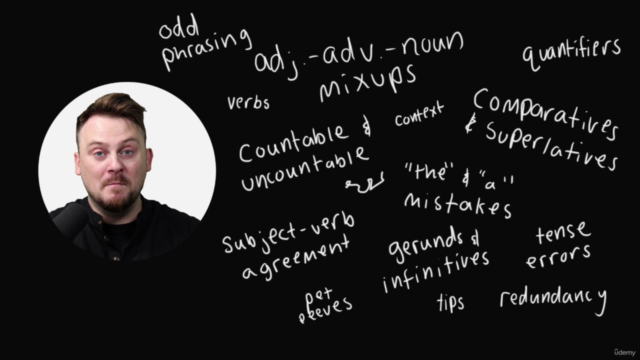 odd
phrasing
adj.-adv.-noun
mixups
quantifiers
verbs
context
Comparatives
& Superlatives
Countable &
uncountable
"the" & "a"
mistakes
subject-verb
agreement
gerunds &
infinitives
tense
errors
pet
peeves
tips
redundancy
ûdemy